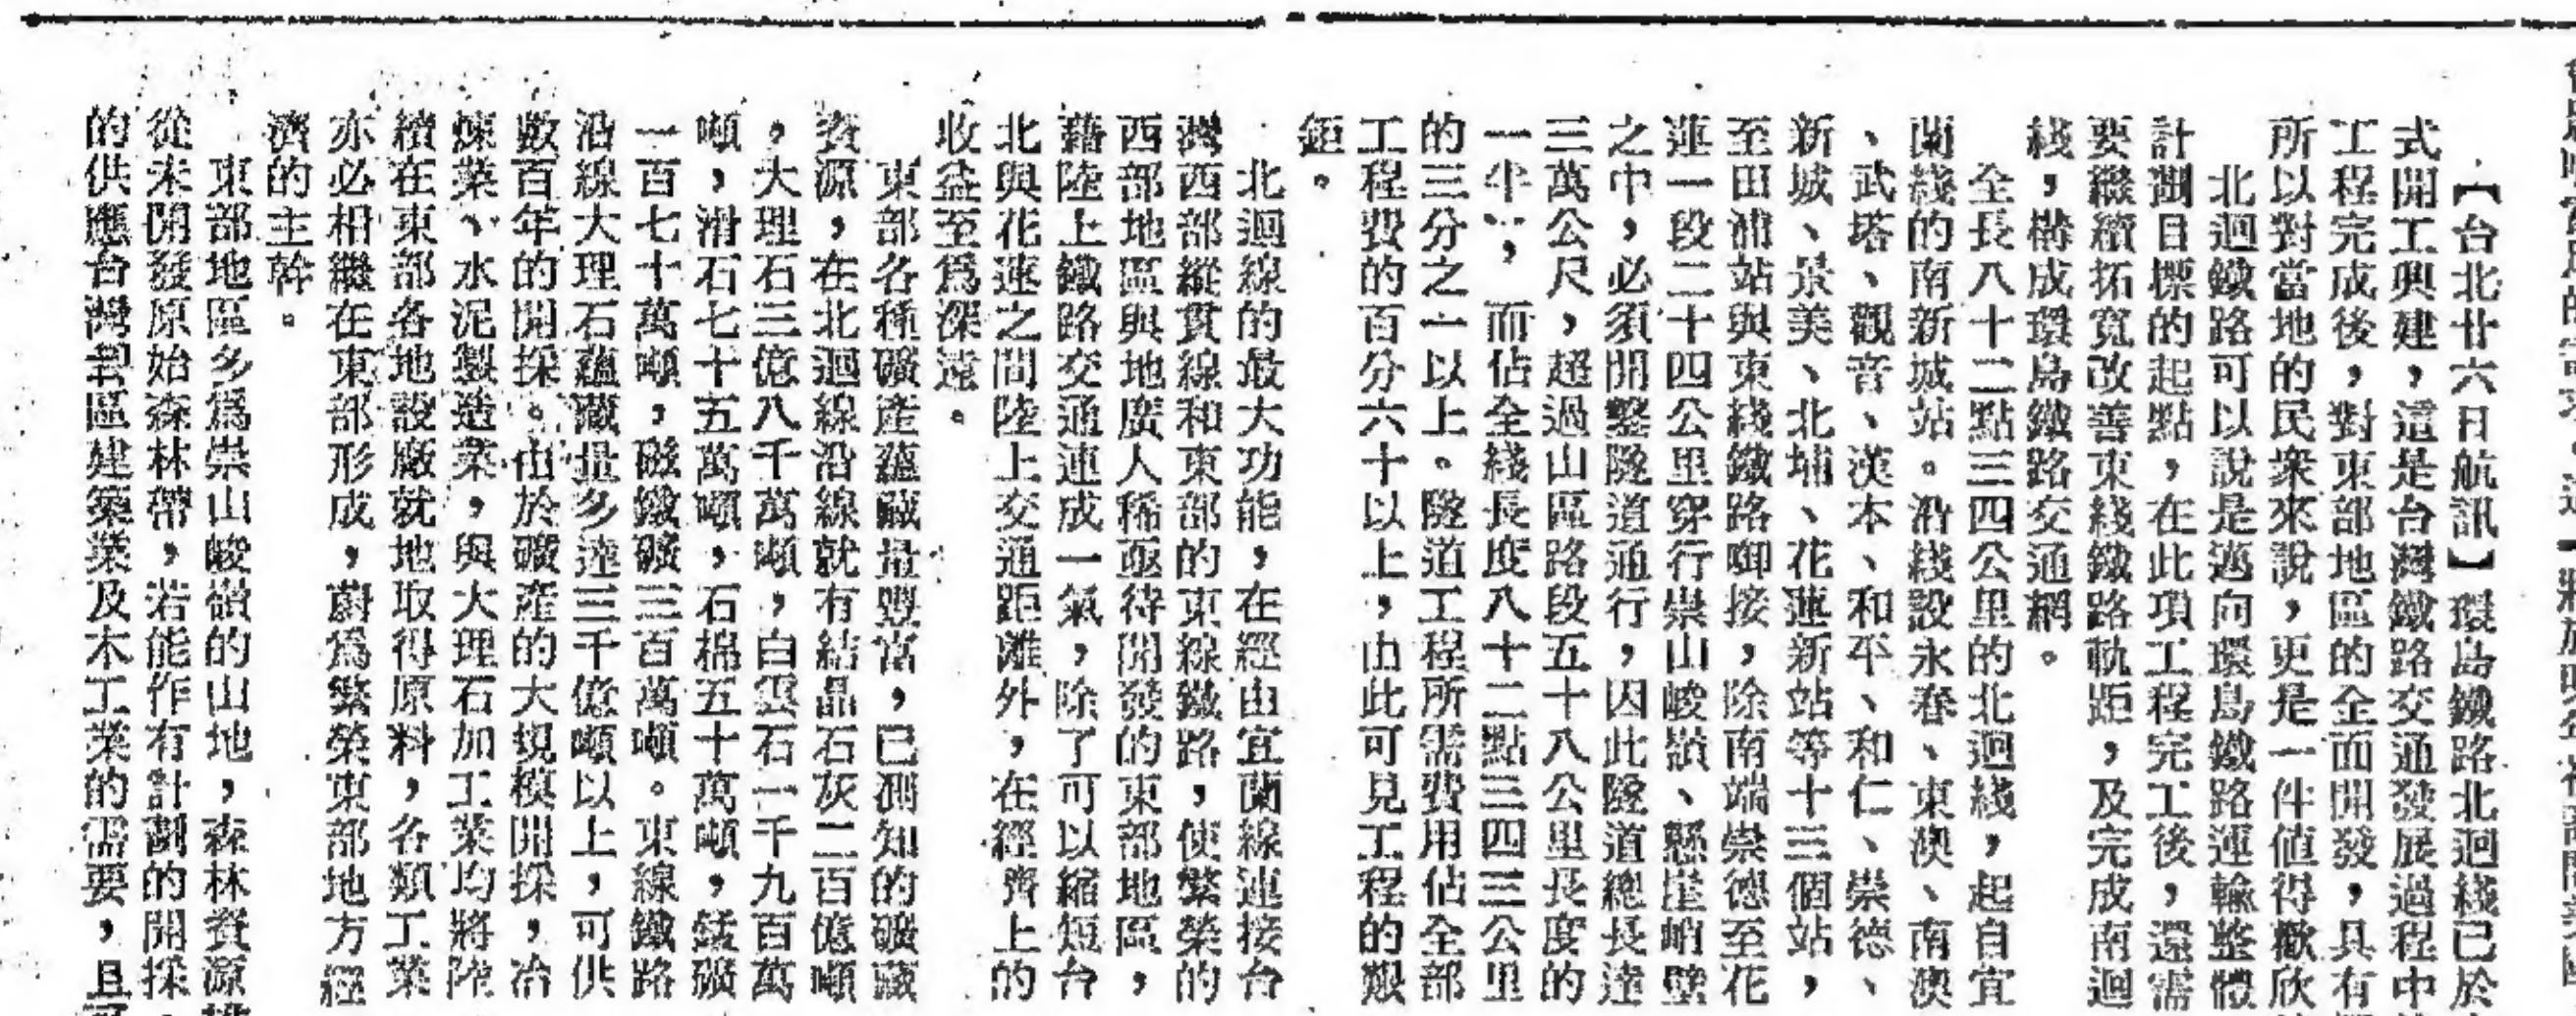 【台北廿六日航訊】環島鐵路北迴綫已於
式開工興建，這是台灣鐵路交通發展過程中
工程完成後，對東部地區的全面開發，具有
所以對當地的民衆來說，更是一件值得歡欣
北迴鐵路可以說是邁向環島鐵路運輸整體
計劃目標的起點，在此項工程完工後，還需
要繼續拓寬改善東綫鐵路軌距，及完成南迴
綫，構成環島鐵路交通網。
全長八十二點三四公里的北迴綫，起自宜
蘭綫的南新城站。沿綫設永春、東澳、南澳
、武塔、觀音、漢本、和平、和仁、崇德、
新城、景美、北埔、花蓮新站等十三個站，
至田浦站與東綫鐵路啣接，除南端崇德至花
蓮一段二十四公里穿行崇山峻嶺、懸崖峭壁
之中，必須開鑿隧道通行，因此隧道總長達
三萬公尺，超過山區路段五十八公里長度的
一半，而佔全綫長度八十二點三四三公里
的三分之一以上。隧道工程所需費用佔全部
工程費的百分六十以上，由此可見工程的艱
鉅。
北迴線的最大功能，在經由宜蘭線連接台
灣西部縱貫線和東部的東線鐵路，使繁榮的
西部地區與地廣人稀亟待開發的東部地區，
藉陸上鐵路交通連成一氣，除了可以縮短台
北與花蓮之間陸上交通距離外，在經濟上的
收益至爲深遠。
東部各種礦產蘊藏量豐富，已測知的礦藏
資源，在北迴線沿線就有結晶石灰二百億噸
，大理石三億八千萬噸，白雲石一千九百萬
噸，滑石七十五萬噸，石棉五十萬噸，錳礦
一百七十萬噸，磁鐵礦三百萬噸。東線鐵路
沿線大理石蘊藏量多達三千億噸以上，可供
數百年的開採。由於礦產的大規模開採，冶
煉業、水泥製造業，與大理石加工業均將陸
續在東部各地設廠就地取得原料，各類工業
亦必相繼在東部形成，蔚爲繁榮東部地方經
濟的主幹。
東部地區多爲崇山峻嶺的山地，森林資源
從未開發原始森林帶，若能作有計劃的開採
的供應台灣地區建築業及木工業的需要，且